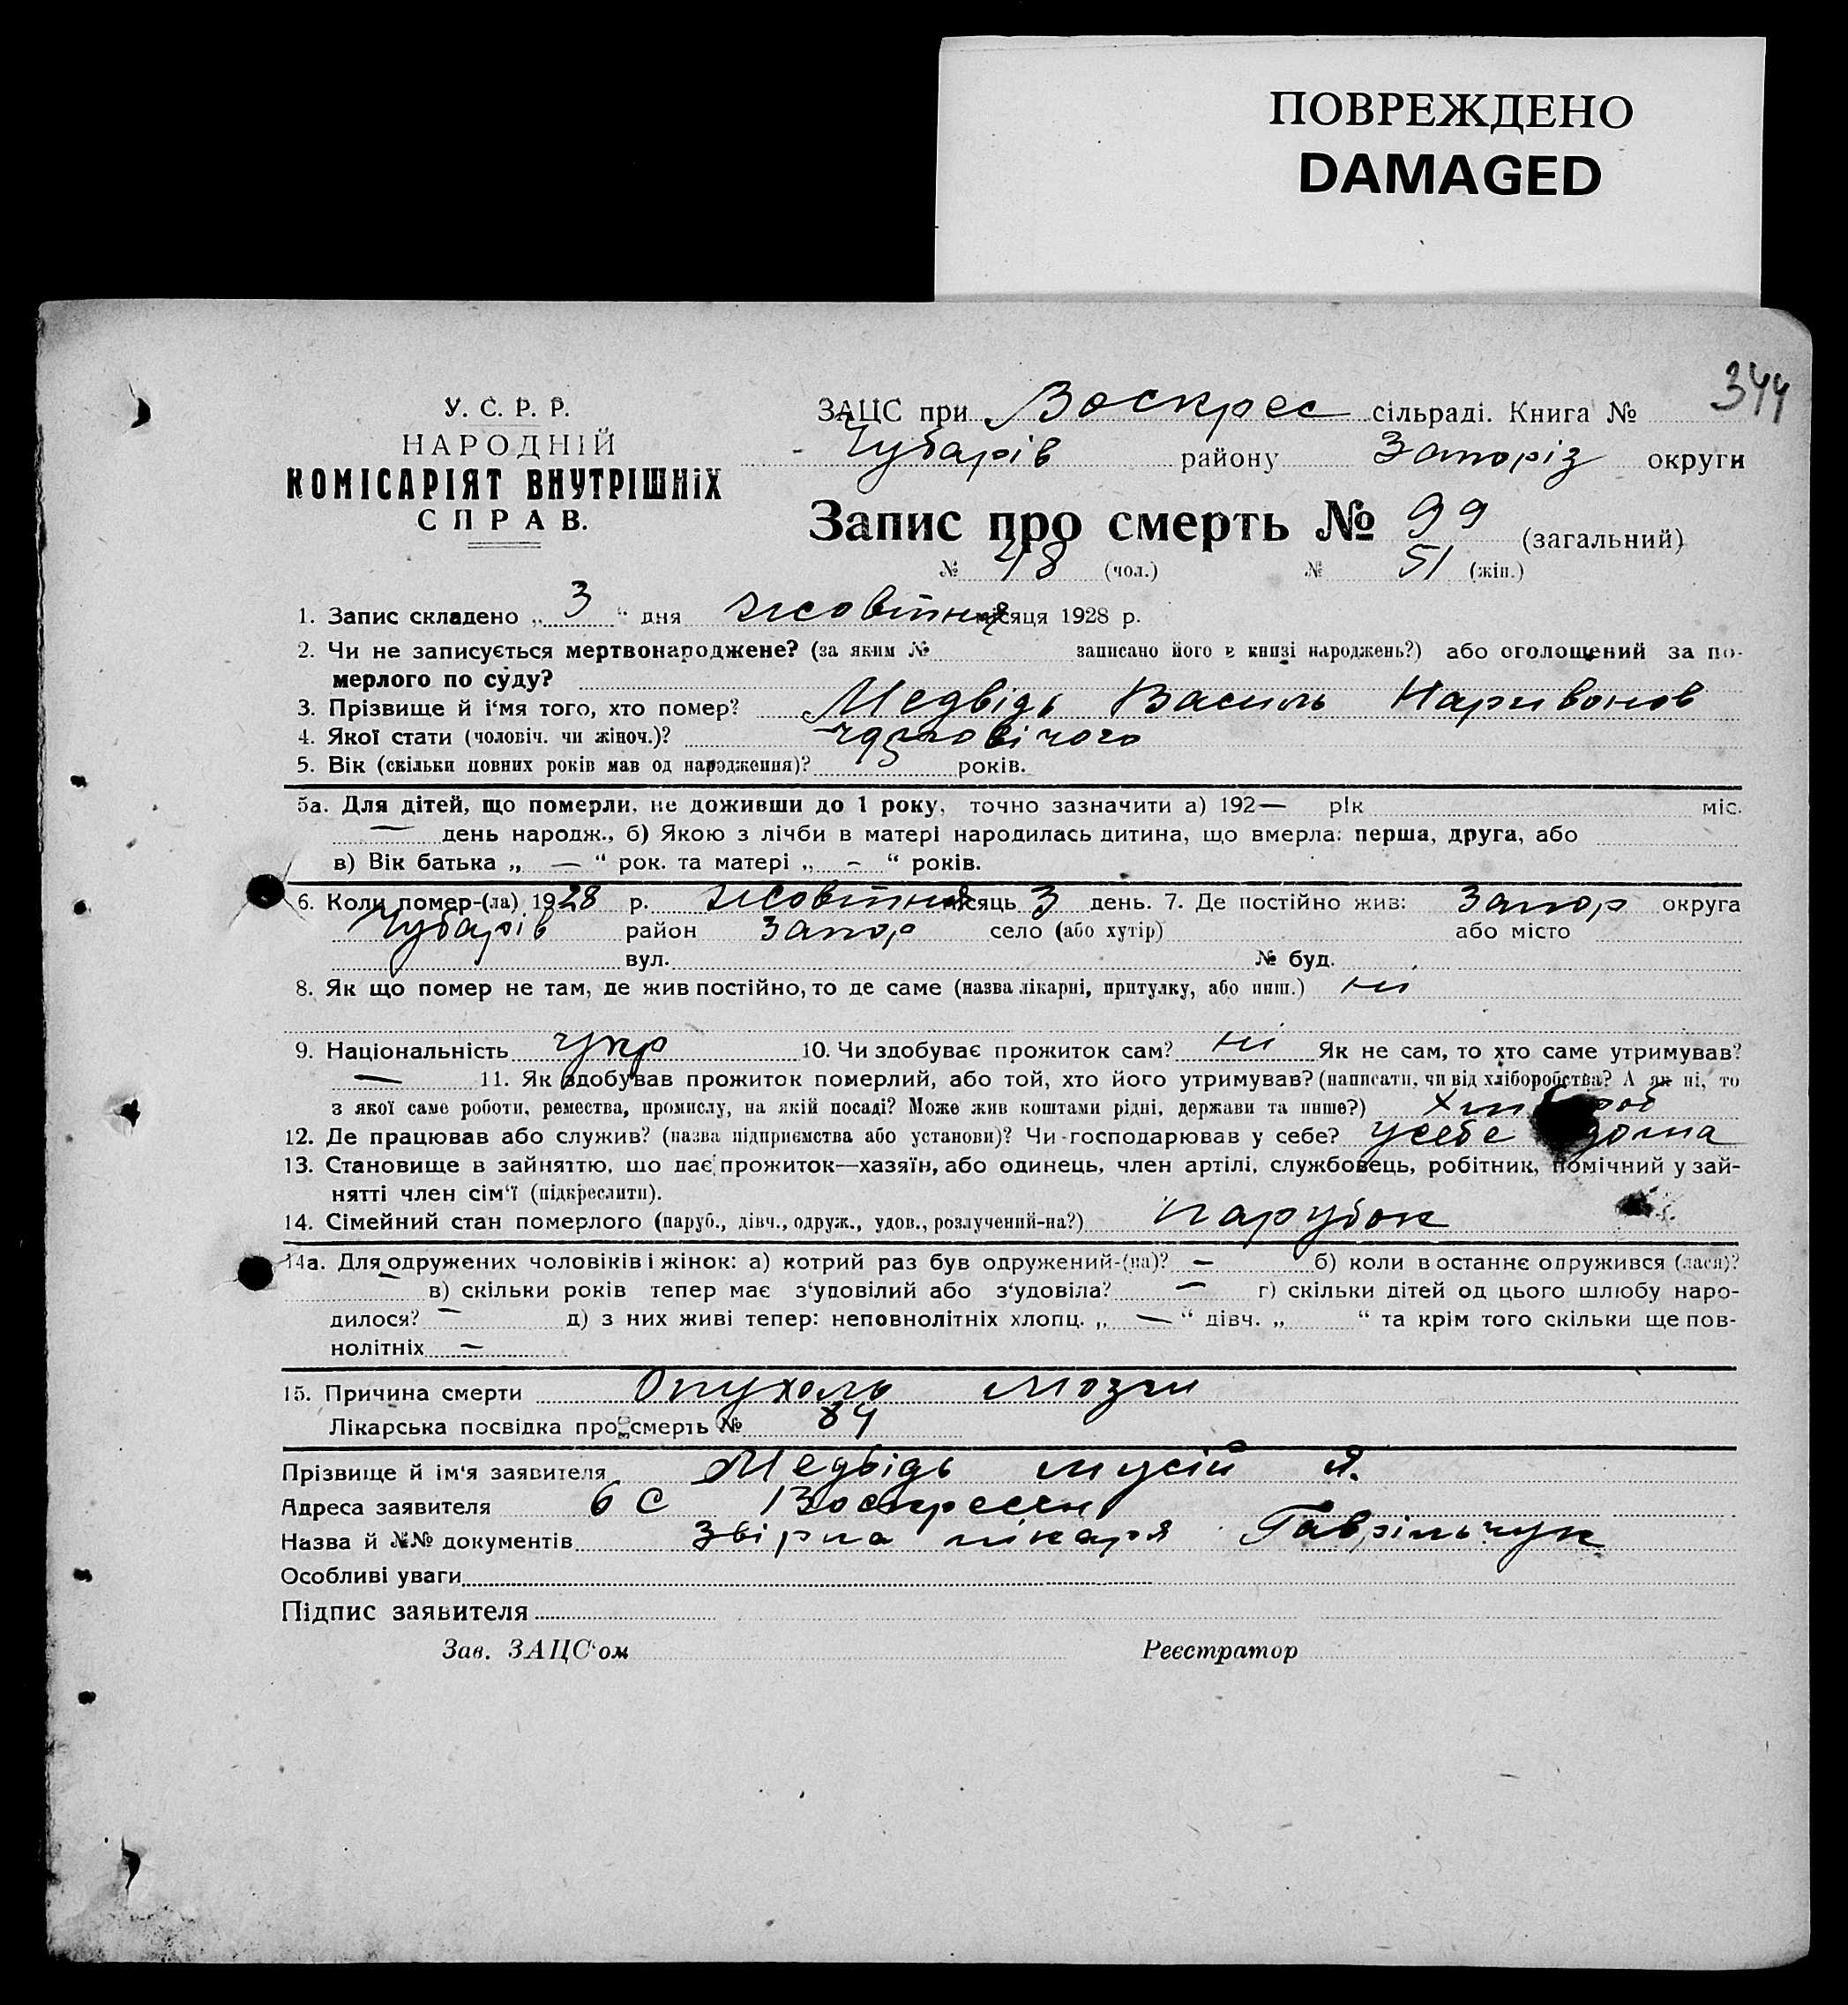 ПОВРЕЖДЕНО
DAMAGED
344
У. С. Р. Р.
НАРОДНІЙ
КОМІСАРІЯТ ВНУТРІШНІХ
СПРАВ.
ЗАЦС при Воскрес сільраді. Книга №
Чубарів району Запоріз округи
Запис про смерть № 99 (загальний)
№ 48 (чол.) № 51 (жін.)
1. Запис складено „ 3 “ дня жовтня місяця 1928 р.
2. Чи не записується мертвонароджене? (за яким № записано його в книзі народжень?) або оголощений за по-
мерлого по суду?
3. Прізвище й і‘мя того, хто помер? Медвідь Василь
4. Якої стати (чоловіч. чи жіноч.)? чоловічого
5. Вік (скільки повних років мав од народження)? років.
5а. Для дітей, що померли, не доживши до 1 року, точно зазначити а) 192— рік міс.
— день народж., б) Якою з лічби в матері народилась дитина, що вмерла: перша, друга, або
в) Вік батька „ — “ рок. та матері „ – “ років.
6. Коли помер-(ла) 1928 р. жовтня місяць 3 день. 7. Де постійно жив: Запор округа
Чубарів район Запор село (або хутір) або місто
вул. № буд.
8. Як що помер не там, де жив постійно, то де саме (назва лікарні, притулку, або инш.) ні
9. Національність Укр 10. Чи здобуває прожиток сам? ні Як не сам, то хто саме утримував?
— 11. Як здобував прожиток померлий, або той, хто його утримував? (написати, чи від хліборобства? А як ні, то
з якої саме роботи, ремества, промислу, на якій посаді? Може жив коштами рідні, держави та инше?)
12. Де працював або служив? (назва підприємства або установи)? Чи господарював у себе? усебе дома
13. Становище в зайняттю, що дає прожиток—хазяїн, або одинець, член артілі, службовець, робітник, помічний у зай-
нятті член сім‘ї (підкреслити).
14. Сімейний стан померлого (паруб., дівч., одруж., удов., розлучений-на?) парубок
14а. Для одружених чоловіків і жінок: а) котрий раз був одружений-(на)? — б) коли в останнє одружився (лася)?
— в) скільки років тепер має з‘удовілий або з‘удовіла? — г) скільки дітей од цього шлюбу наро-
дилося? — д) з них живі тепер: неповнолітніх хлопц. „ — “ дівч. „ “ та крім того скільки ще пов-
нолітніх —
15. Причина смерти Опухоль мозги
Лікарська посвідка про смерть № 84
Прізвище й ім‘я заявителя Медвідь Мусій Я.
Адреса заявителя
Назва й №№ документів лікаря Гаврільчук
Особливі уваги
Підпис заявителя
Зав. ЗАЦС‘ом Реєстратор